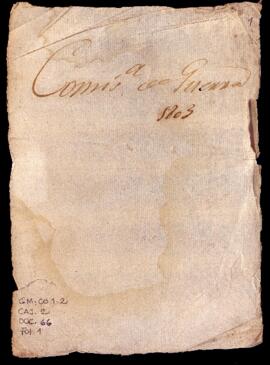 Comis.ª de Guerra
1803
1
GM-CO 1-2
CAJ. 2
DOC. 66
Fol. 1